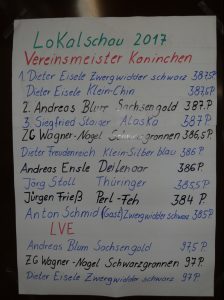 Lokalschau 2017
Vereinsmeister Kaninchen
1. Dieter Eisele Zwergwidder schwarz 387,5P.
Dieter Eisele Klein-Chin 387,5
2. Andreas Blum Sachsengold 387 P.
3. Siegfried Alaska 387 P.
ZG Wagner-Nagel Schwarzgrannen 386,5P.
Dieter Freudenreich Klein Silber blau 386 P.
Andreas Ensle 386 P.
Jörg Stoll Thüringer 385,5
Jürgen Frieß Perl-Feh 384 P.
Anton Schmid (Gast) Zwergwidder schwarz 385
LVE
Andreas Blum Sachsengold 97,5 P.
ZG Wagner-Nagel Schwarzgrannen 97 P.
Dieter Eisele Zwergwidder schwarz 97 P.